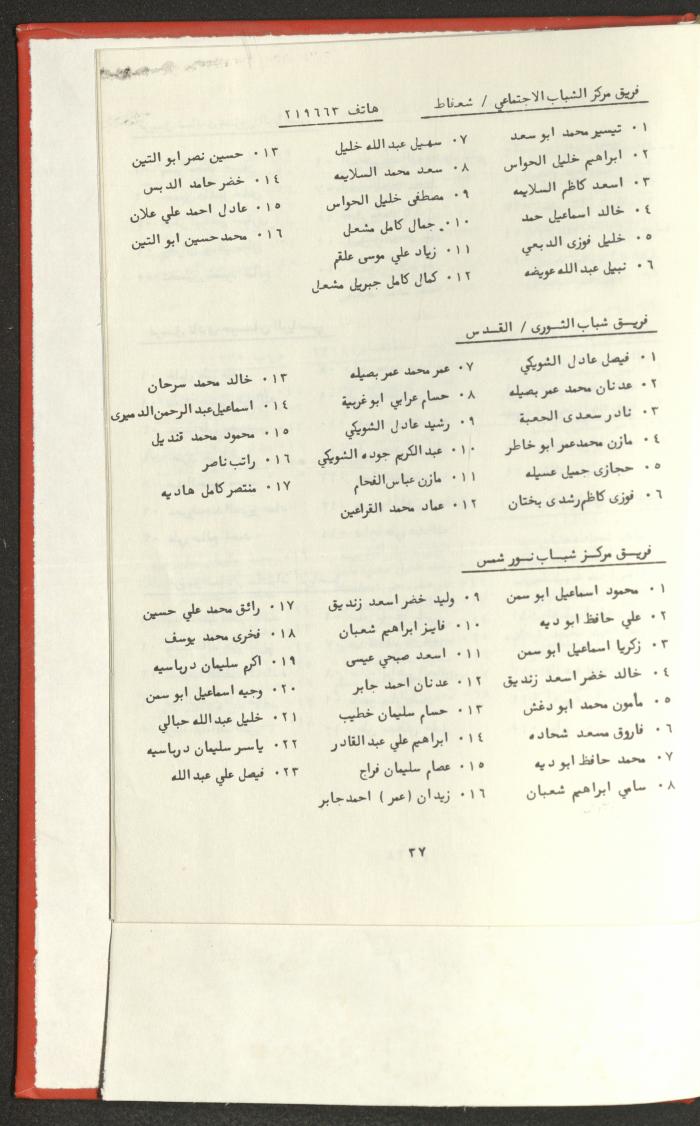 فريق مركز الشباب الاجتماعي / شعفاط هاتف ٢١٩٦٦٣
٠١ تيسير محمد ابو سعد
٠٢ ابراهيم خليل الحواس
٠٣ اسعد كاظم السلايمه
٠٤ خالد اسماعيل حمد
٠٥ خليل فوزى الدبعي
٠٦ نبيل عبد الله عويضه
٠٧ سهيل عبد الله خليل
٠٨ سعد محمد السلايمه
٠٩ مصطفى خليل الحواس
٠١٠ جمال كامل مشعل
٠١١ زياد علي موسى علقم
٠١٢ كمال كامل جبريل مشعل
٠١٣ حسين نصر ابو التين
٠١٤ خضر حامد الدبس
٠١٥ عادل احمد علي علان
٠١٦ محمد حسين ابو التين
فريق شباب الثورى / القدس
٠١ فيصل عادل الشويكي
٠٢ عدنان محمد عمر بصيله
٠٣ نادر سعدى الحعبة
٠٤ مازن محمد عمر ابو خاطر
٠٥ حجازى جميل عسيله
٠٦ فوزى كاظم رشدى بختان
٠٧ عمر محمد عمر بصيله
٠٨ حسام عرابي ابو غربية
٠٩ رشيد عادل الشويكي
٠١٠ عبد الكريم جوده الشويكي
٠١١ مازن عباس الفحام
٠١٢ عماد محمد القراعين
٠١٣ خالد محمد سرحان
٠١٤ اسماعيل عبد الرحمن الدميرى
٠١٥ محمود محمد قنديل
٠١٦ راتب ناصر
٠١٧ منتصر كامل هاديه
فريق مركز شباب نور شمس
٠١ محمود اسماعيل ابو سمن
٠٢ علي حافظ ابو ديه
٠٣ زكريا اسماعيل ابو سمن
٠٤ خالد خضر اسعد زنديق
٠٥ مأمون محمد ابو دغش
٠٦ فاروق مسعد شحاده
٠٧ محمد حافظ ابو ديه
٠٨ سامي ابراهيم شعبان
٠٩ وليد خضر اسعد زنديق
٠١٠ فايز ابراهيم شعبان
٠١١ اسعد صبحي عيسى
٠١٢ عدنان احمد جابر
٠١٣ حسام سليمان خطيب
٠١٤ ابراهيم علي عبد القادر
٠١٥ عصام سليمان فراج
٠١٦ زيدان (عمر) احمد جابر
٠١٧ رائق محمد علي حسين
٠١٨ فخرى محمد يوسف
٠١٩ اكرم سليمان درباسيه
٠٢٠ وجيه اسماعيل ابو سمن
٠٢١ خليل عبد الله حبالي
٠٢٢ ياسر سليمان درباسيه
٠٢٣ فيصل علي عبد الله
٣٧